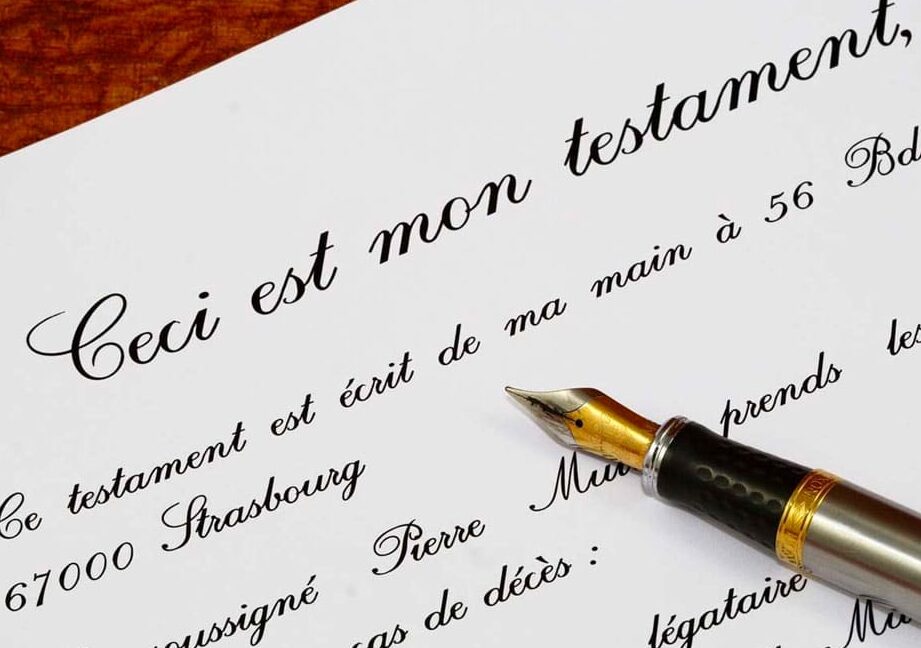 Ceci est mon testament,
Ce testament est écrit de ma main à 56 Bd
67000 Strasbourg
soussigné Pierre prends les
cas de décès :
légataire